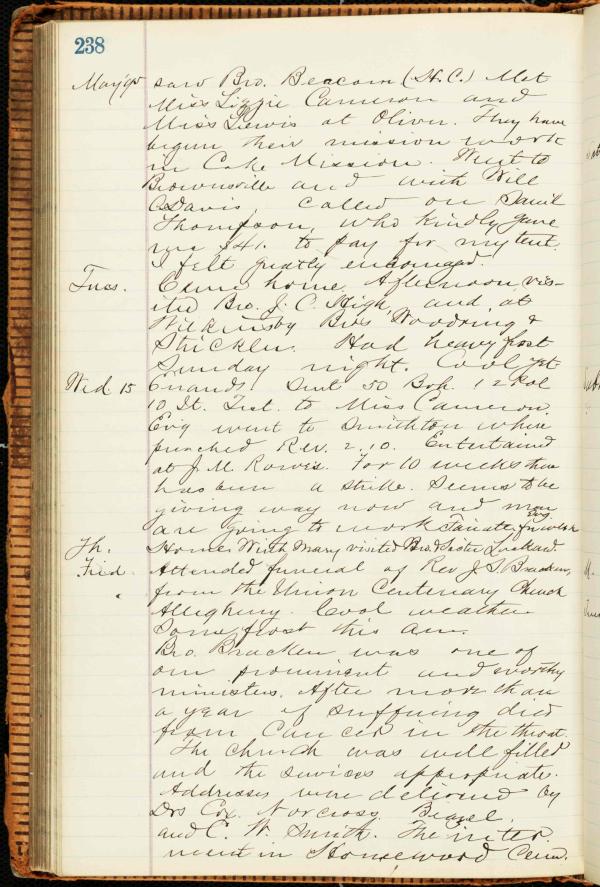 238
May '95 saw Bro. Beacom (H.C.) Met
Miss Lizzie Cameron and
Miss Lewis at Oliver. They have
begun their mission work
in Coke Mission. Went to
Brownsville and with Will
C. Davis, called on Saml
Thompson, who kindly gave
me $41. to pay for my tent.
I felt greatly encouraged.
Tues. Came home. Afternoon, vis-
ited Bro. J. C. High, and at
Wilkinsby Bros Wooding &
Strickler. Had heavy frost
Sunday night. Cool yet
Wed. 15 Errands. Sent 50 Bok. 12
10 Test. to Miss Cameron
Evg went to Smithton where
preached Rev. 2.10. Entertained
at J. M. Rowe's. For 10 weeks there
has been a strike. Seems to be
giving way now and men
are going to work
Th. Home. With Mary visited Bro. & Sister Lockard.
Frid. Attended funeral of Rev J. S. Bracken,
from the Union Centenary Church
Allegheny. Cool weather
Some frost this a.m.
Bro. Bracken was one of
our prominent and worthy
ministers. After more than
a year of suffering died
from Cancer in the throat.
The church was well filled
and the services appropriate.
Addresses were delivered by
Drs Cox, Norcross,
and C. W. Smith. The inter
ment in Homewood Cem.